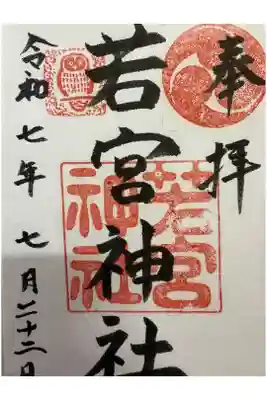 奉拝
若宮神社
若宮
神社
令和七年七月二十二日